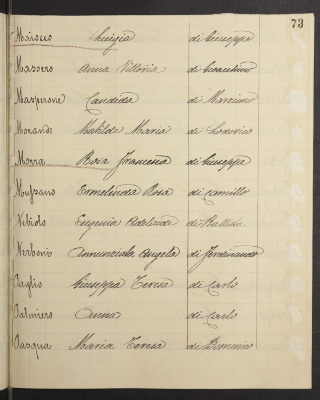 73
Luigia di Giuseppe
Masoero Anna Vittoria di Gioachino
Masperone Candida di Marciano
Morando Matilde Maria di Lodovico
Morra Rosa Francesca di Giuseppe
Mussano Ermelinda Rosa di Camillo
Nebiolo Eugenia Adelaide di Battista
Nerbonis Annunziata Angela di Ferdinando
Paglio Giuseppa Teresa di Carlo
Palmiero Anna di Carlo
Pasqua Maria Teresa di Domenico